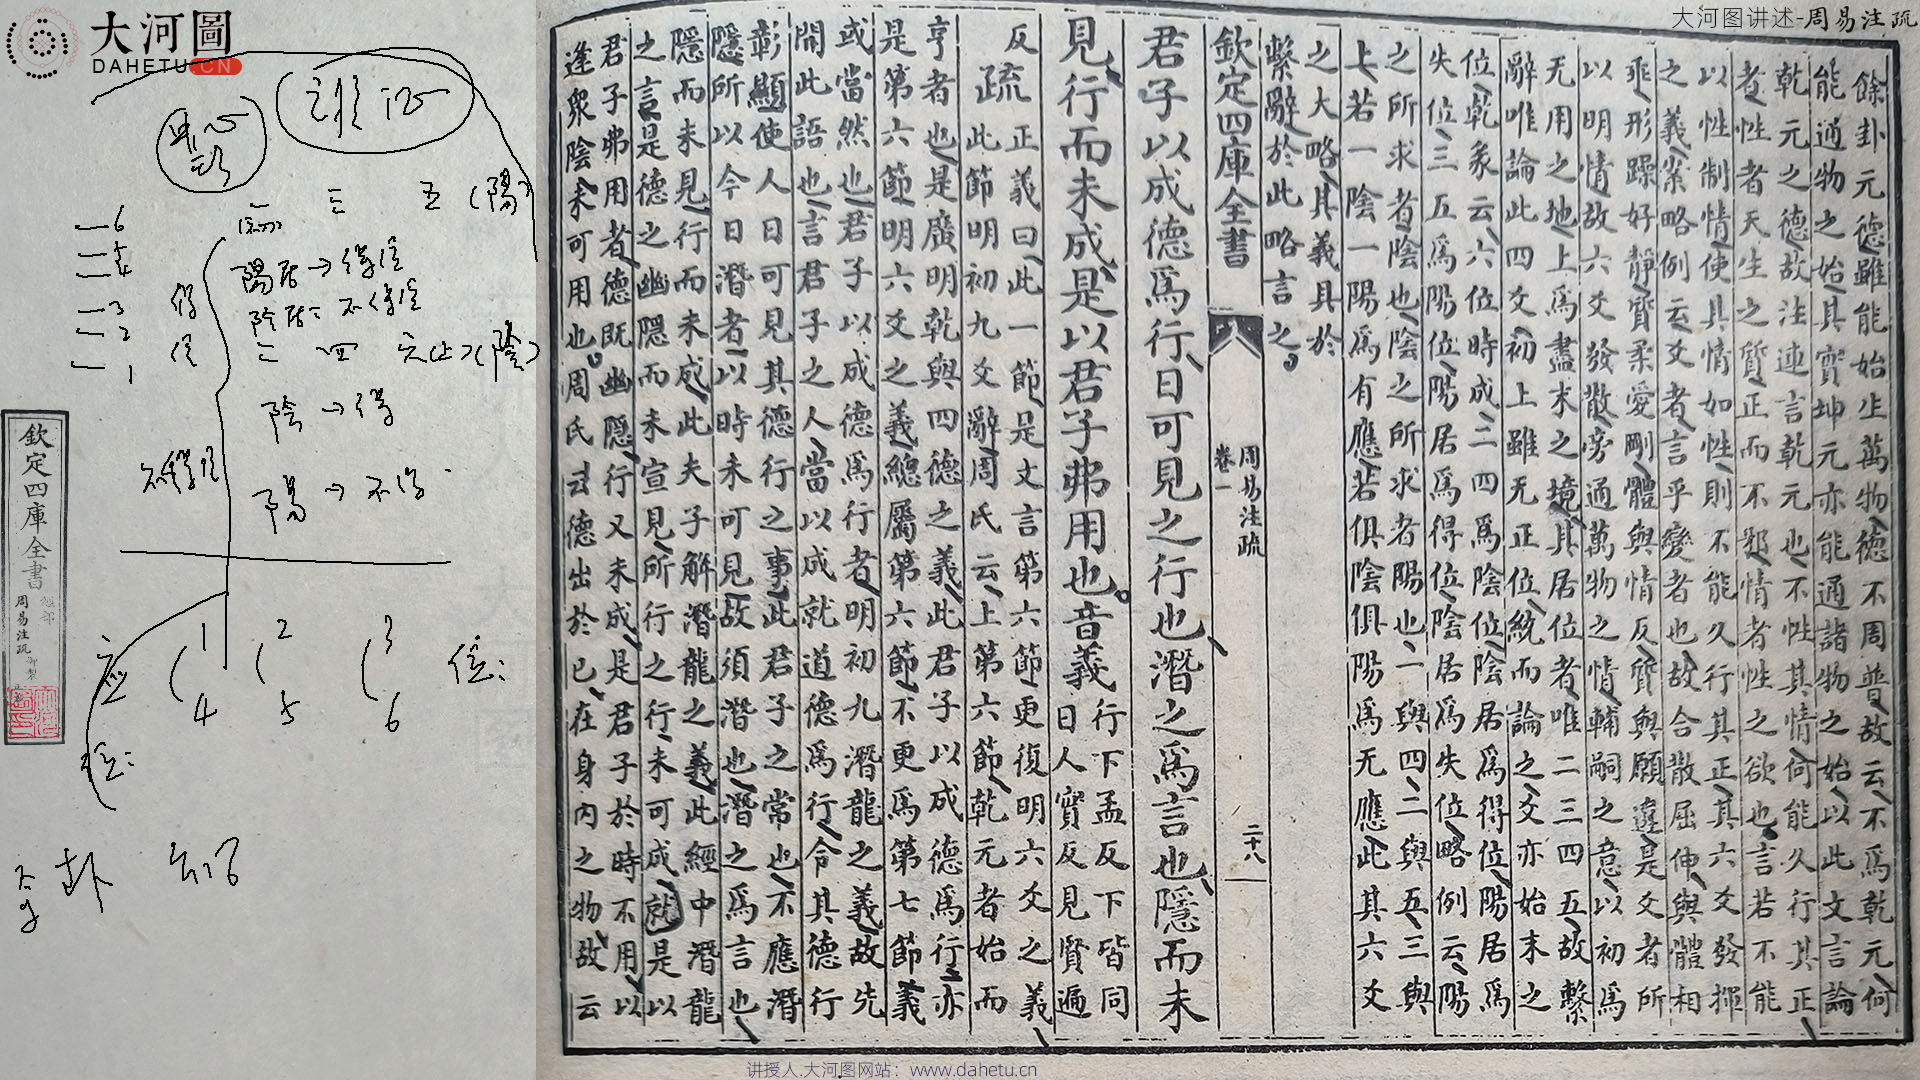 大河圖
DAHETU.CN
大河图讲述-周易注疏
餘卦元德雖能始生萬物德不周普故云不爲乾元何
能通物之始其實坤元亦能通諸物之始以此文言論
乾元之德故注連言乾元也不性其情何能久行其正
者性者天生之質正而不邪情者性之欲也言若不能
以性制情使其情如性則不能久行其正其六爻發揮
之義案略例云爻者言乎變者也故合散屈伸與體相
乖形躁好靜質柔愛剛體與情反質與願違是爻者所
以明情故六爻發散旁通萬物之情輔嗣之意以初爲
无用之地上爲盡末之境其居位者唯二三四五故繫
辭唯論此四爻初上雖无正位統而論之爻亦始末之
位乾象云六位時成二四爲陰位陰居爲得位陽居爲
失位三五爲陽位陽居爲得位陰居爲失位略例云陽
之所求者陰也陰之所求者陽也一與四二與五三與
上若一陰一陽爲有應若俱陰俱陽爲无應此其六爻
之大略其義具於
繫辭於此略言之
欽定四庫全書
周易注疏
卷一
二十八
君子以成德爲行日可見之行也潛之爲言也隱而未
見行而未成是以君子弗用也音義行下孟反下皆同
日人實反見賢遍
反
疏正義曰此一節是文言第六節更復明六爻之義
此節明初九爻辭周氏云上第六節乾元者始而
亨者也是廣明乾與四德之義此君子以成德爲行亦
是第六節明六爻之義總屬第六節不更爲第七節義
或當然也君子以成德爲行者明初九潛龍之義故先
開此語也言君子之人當以成就道德爲行令其德行
彰顯使人日可見其德行之事此君子之常也不應潛
隱所以今日潛者以時未可見故須潛也潛之爲言也
隱而未見行而未成此夫子解潛龍之義此經中潛龍
之言是德之幽隱而未宣見所行之行未可成就是以
君子弗用者德既幽隱行又未成是君子於時不用以
逢衆陰未可用也周氏云德出於己在身内之物故云
三 五(陽)
6
5
4
3
2
1
陽居→得位
陰居:不得位
得
位
二 四 六(上)(陰)
陰→得
不得位
陽→不得
应 1 2 3 位:
4 5 6
位:
欽定四庫全書
經部
周易注疏
讲授人.大河图网站：www.dahetu.cn